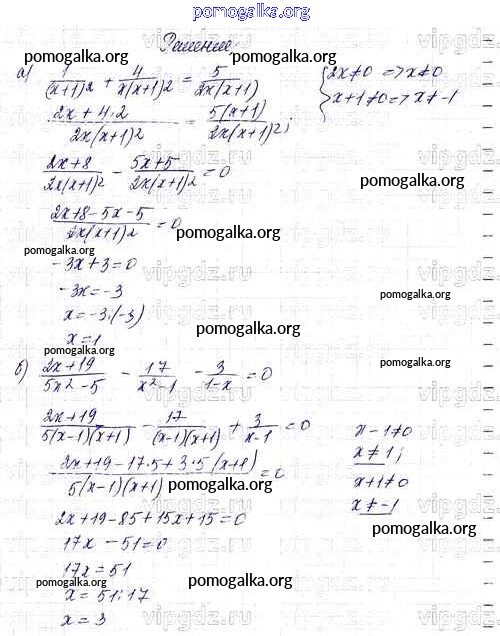 pomogalka.org
Решение
pomogalka.org pomogalka.org
а) 1/(x+1)2 + 4/x(x+1)2 = 5/2x(x+1) { 2x≠0 => x≠0
x+1≠0 => x≠-1
2x+4·2/2x(x+1)2 = 5(x+1)/2x(x+1)2;
vipgdz.ru
2x+8/2x(x+1)2 - 5x+5/2x(x+1)2 = 0
pomogalka.org
2x+8-5x-5/2x(x+1)2 = 0
pomogalka.org
pomogalka.org
-3x+3=0
vipgdz.ru
-3x=-3
pomogalka.org
x=-3:(-3)
pomogalka.org
x=1
pomogalka.org
б) 2x+19/5x2-5 - 17/x2-1 - 3/1-x = 0
pomogalka.org
vipgdz.ru
2x+19/5(x-1)(x+1) - 17/(x-1)(x+1) + 3/x-1 = 0
x-1≠0
x≠1;
2x+19-17·5+3·5(x+1)/5(x-1)(x+1) = 0
x+1≠0
pomogalka.org
x≠-1
2x+19-85+15x+15=0
pomogalka.org
17x-51=0
17x=51
pomogalka.org pomogalka.org
x=51:17
x=3
vipgdz.ru